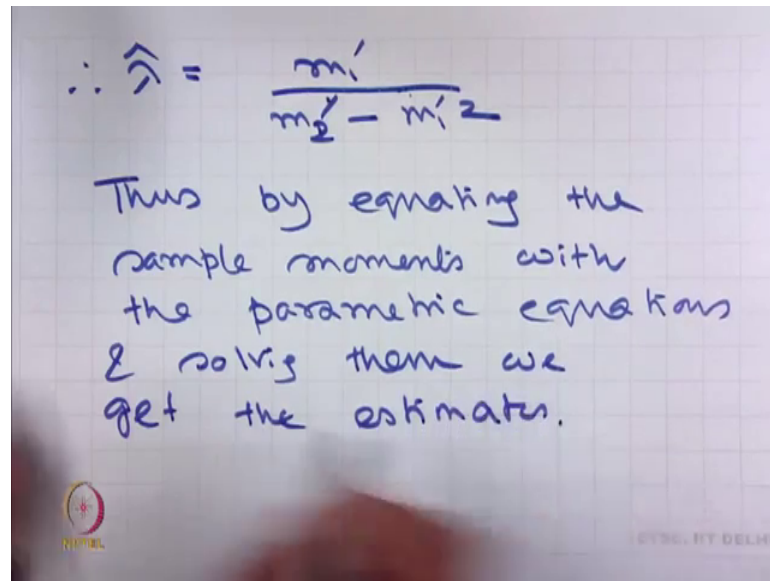 ∴ λ̂ = m₁′ / (m₂′ − m₁′²)
Thus by equating the
sample moments with
the parametric equations
& solvig them we
get the estimates.
NPTEL
ETSC, IIT DELHI